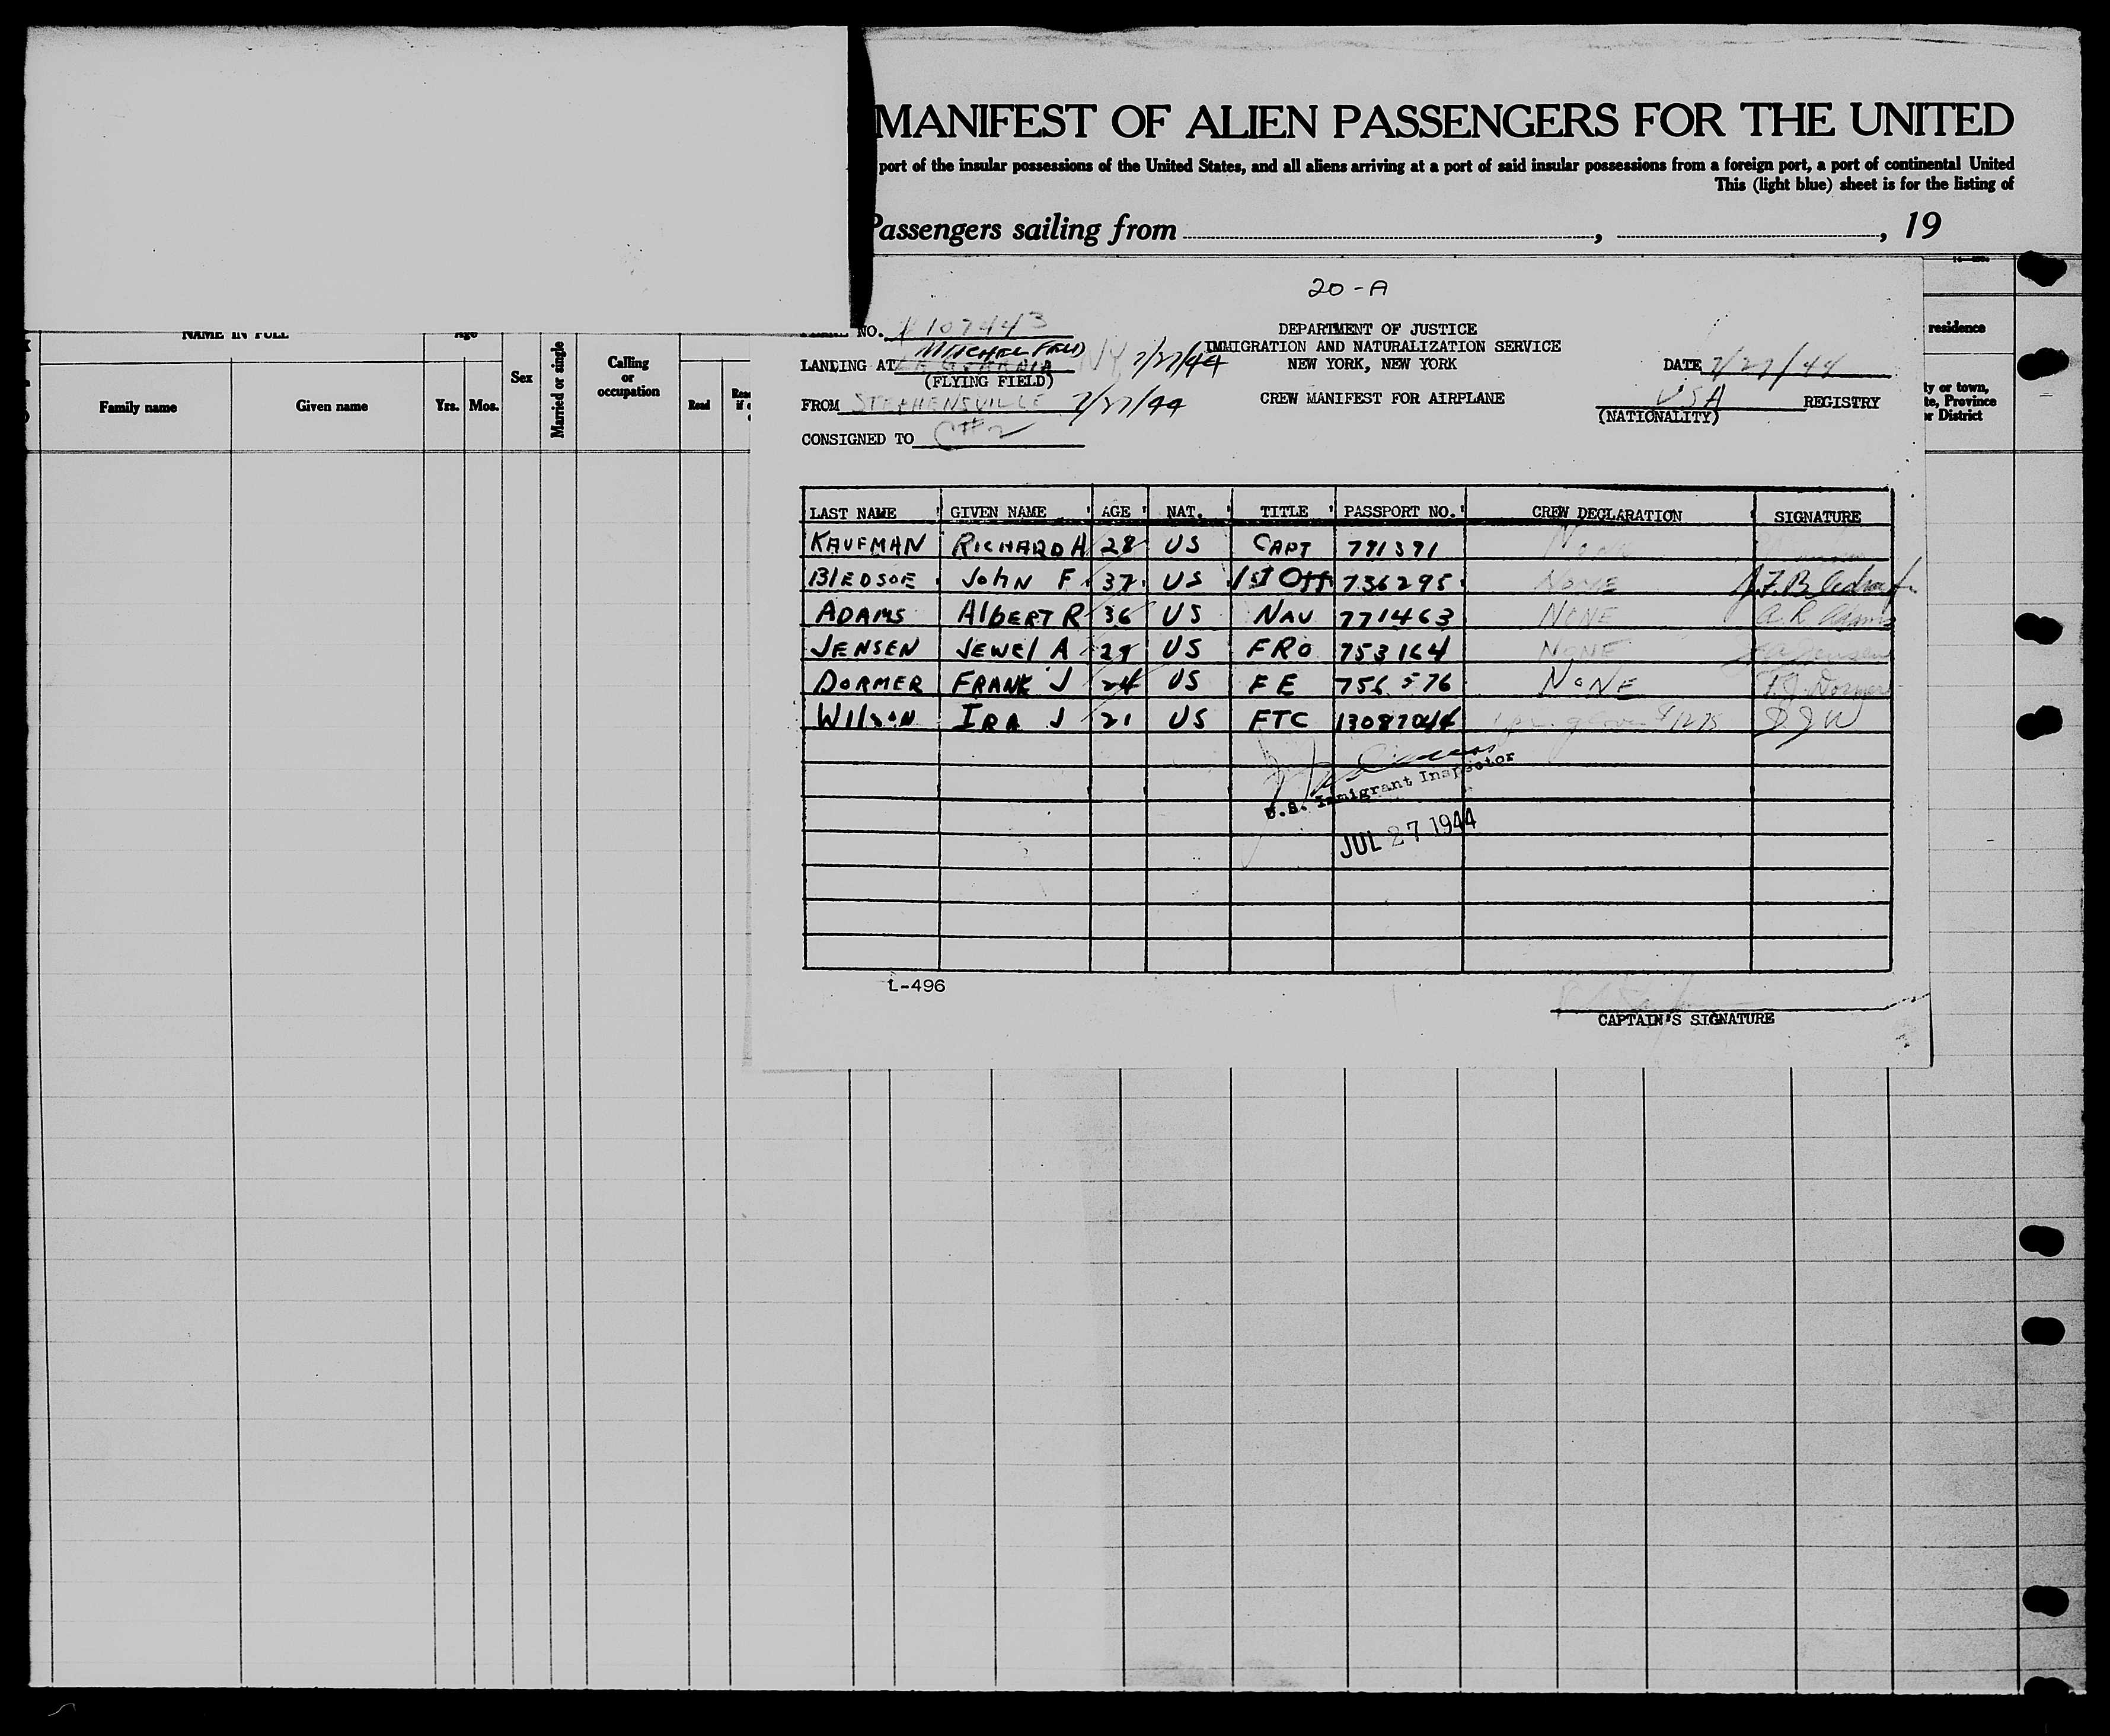 MANIFEST OF ALIEN PASSENGERS FOR THE UNITED
port of the insular possessions of the United States, and all aliens arriving at a port of said insular possessions from a foreign port, a port of continental United
This (light blue) sheet is for the listing of
Passengers sailing from , , 19
20-A
NO. 107443
DEPARTMENT OF JUSTICE
IMMIGRATION AND NATURALIZATION SERVICE
NEW YORK, NEW YORK
MITCHEL FIELD
LANDING AT NY 7/27/44
(FLYING FIELD)
DATE 7/27/44
FROM STEPHENSVILLE 7/27/44
CREW MANIFEST FOR AIRPLANE
USA REGISTRY
(NATIONALITY)
CONSIGNED TO
NAME IN FULL
Age
Family name
Given name
Yrs.
Mos.
Sex
Married or single
Calling
or
occupation
Read
residence
ty or town,
te, Province
or District
LAST NAME GIVEN NAME AGE NAT. TITLE PASSPORT NO. CREW DECLARATION SIGNATURE
KAUFMAN RICHARD A 28 US CAPT 771391 NONE
BlEDSOE JohN F 37 US 1st Off 736295 NONE J.F. Bledsoe Jr
ADAMS AlbERT R 36 US NAV 771463 NONE A.R. Adams
JENSEN JEWEl A 29 US FRO 753164 NONE Jensen
DORMER FRANK J 24 US FE 756576 NONE F.J. Dormer
WIlSON IRA J 21 US FTC 13087044 1 pr. gloves $12.75 IJW
U.S. Immigrant Inspector
JUL 27 1944
L-496
CAPTAIN'S SIGNATURE